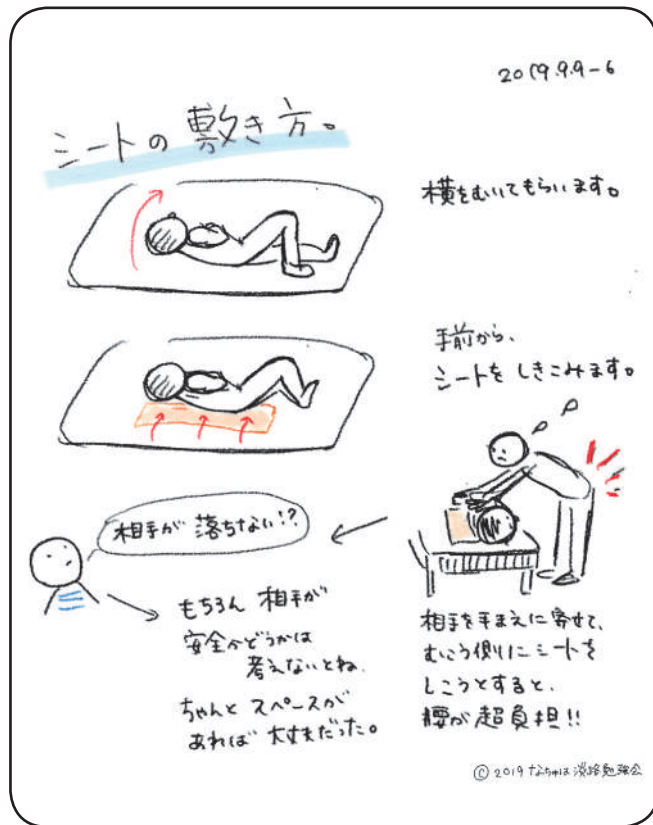 2019.9.9-6
シートの敷き方。
横をむいてもらいます。
手前から、
シートをしきこみます。
相手が落ちない!?
もちろん相手が
安全かどうかは
考えないとね、
ちゃんとスペースが
あれば大丈夫だった。
相手を手まえに寄せて、
むこう側にシートを
しこうとすると、
腰が超負担!!
© 2019 なちゅは淡路勉強会